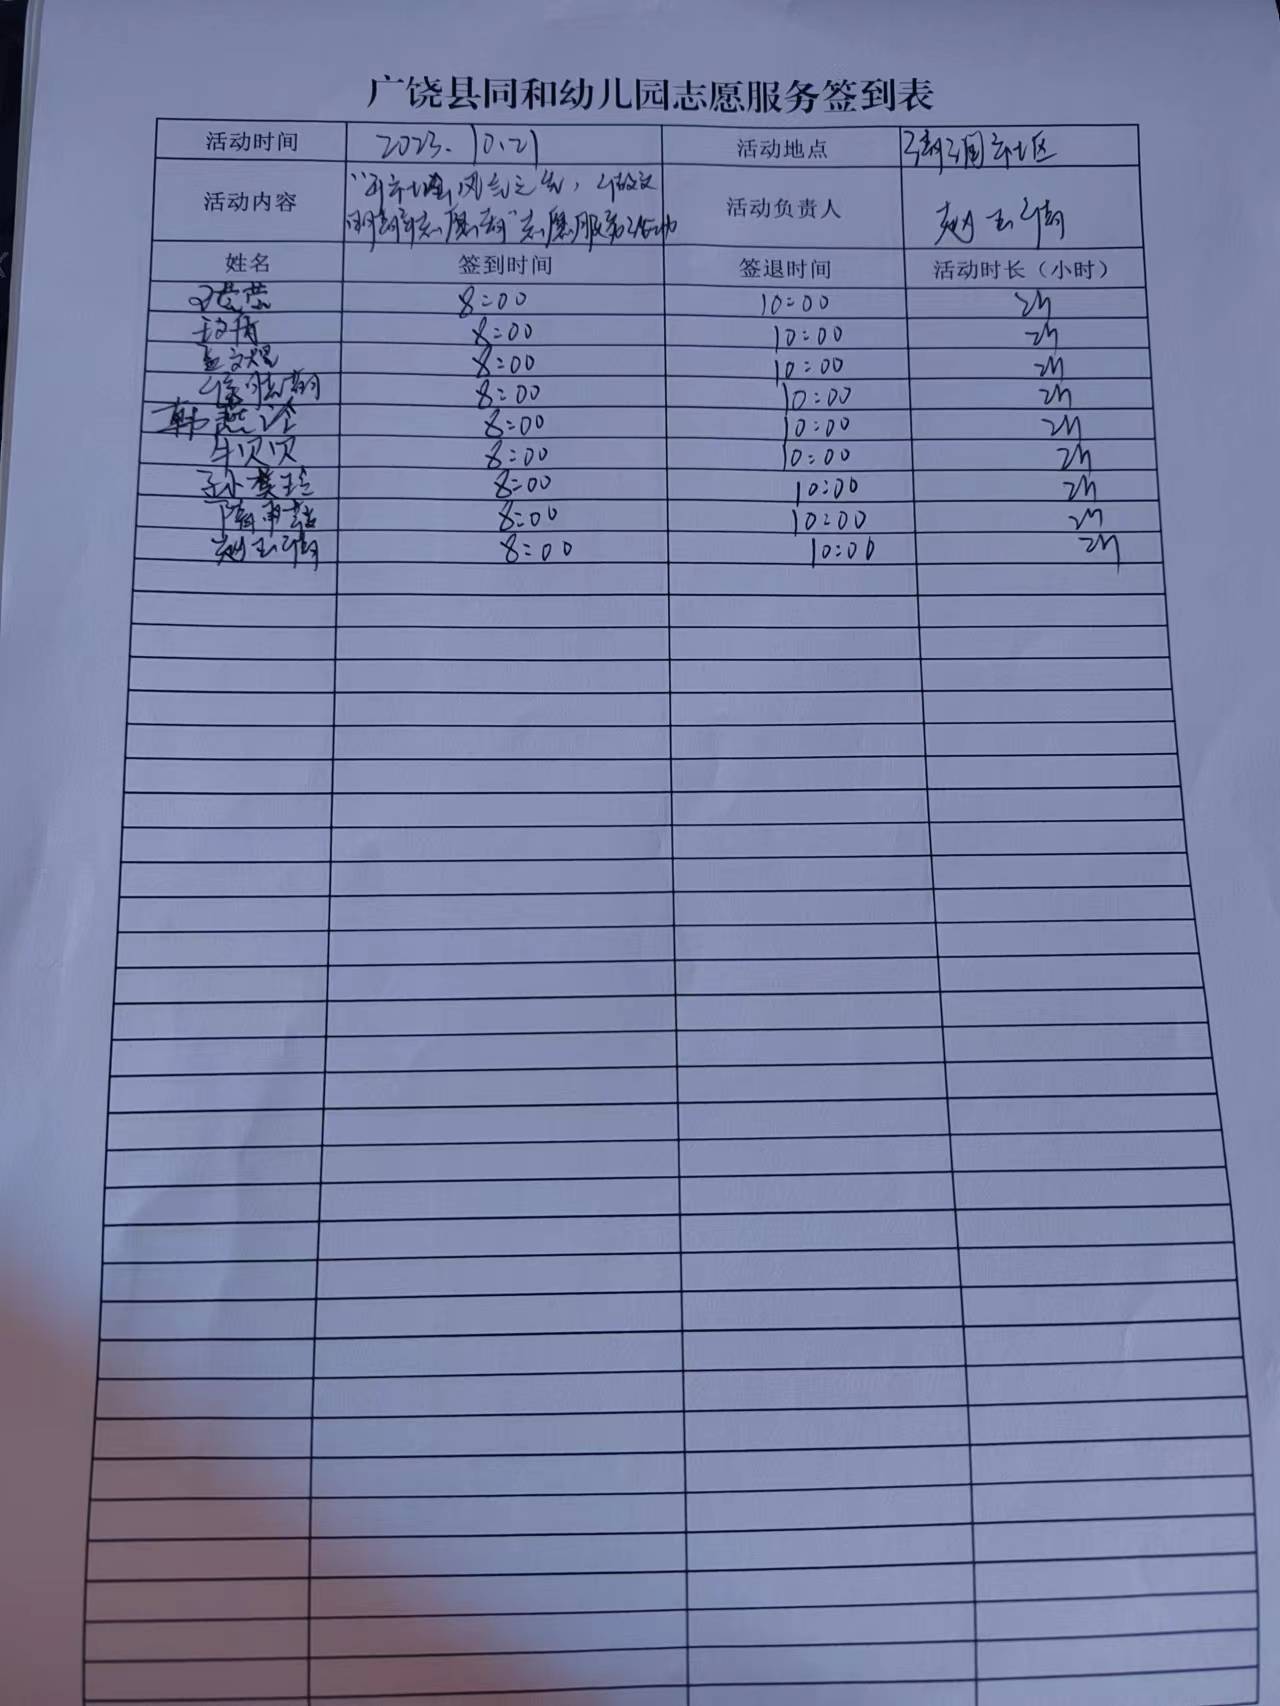 广饶县同和幼儿园志愿服务签到表
活动时间 2023.10.21 活动地点 社区
活动内容 "开社会风气之先，做文
明 志愿 "志愿服务活动
活动负责人 赵玉倩
姓名 签到时间 签退时间 活动时长（小时）
8:00 10:00 2h
8:00 10:00 2h
孟文焜 8:00 10:00 2h
8:00 10:00 2h
韩燕 8:00 10:00 2h
牛贝贝 8:00 10:00 2h
孙 8:00 10:00 2h
隋 8:00 10:00 2h
赵玉倩 8:00 10:00 2h